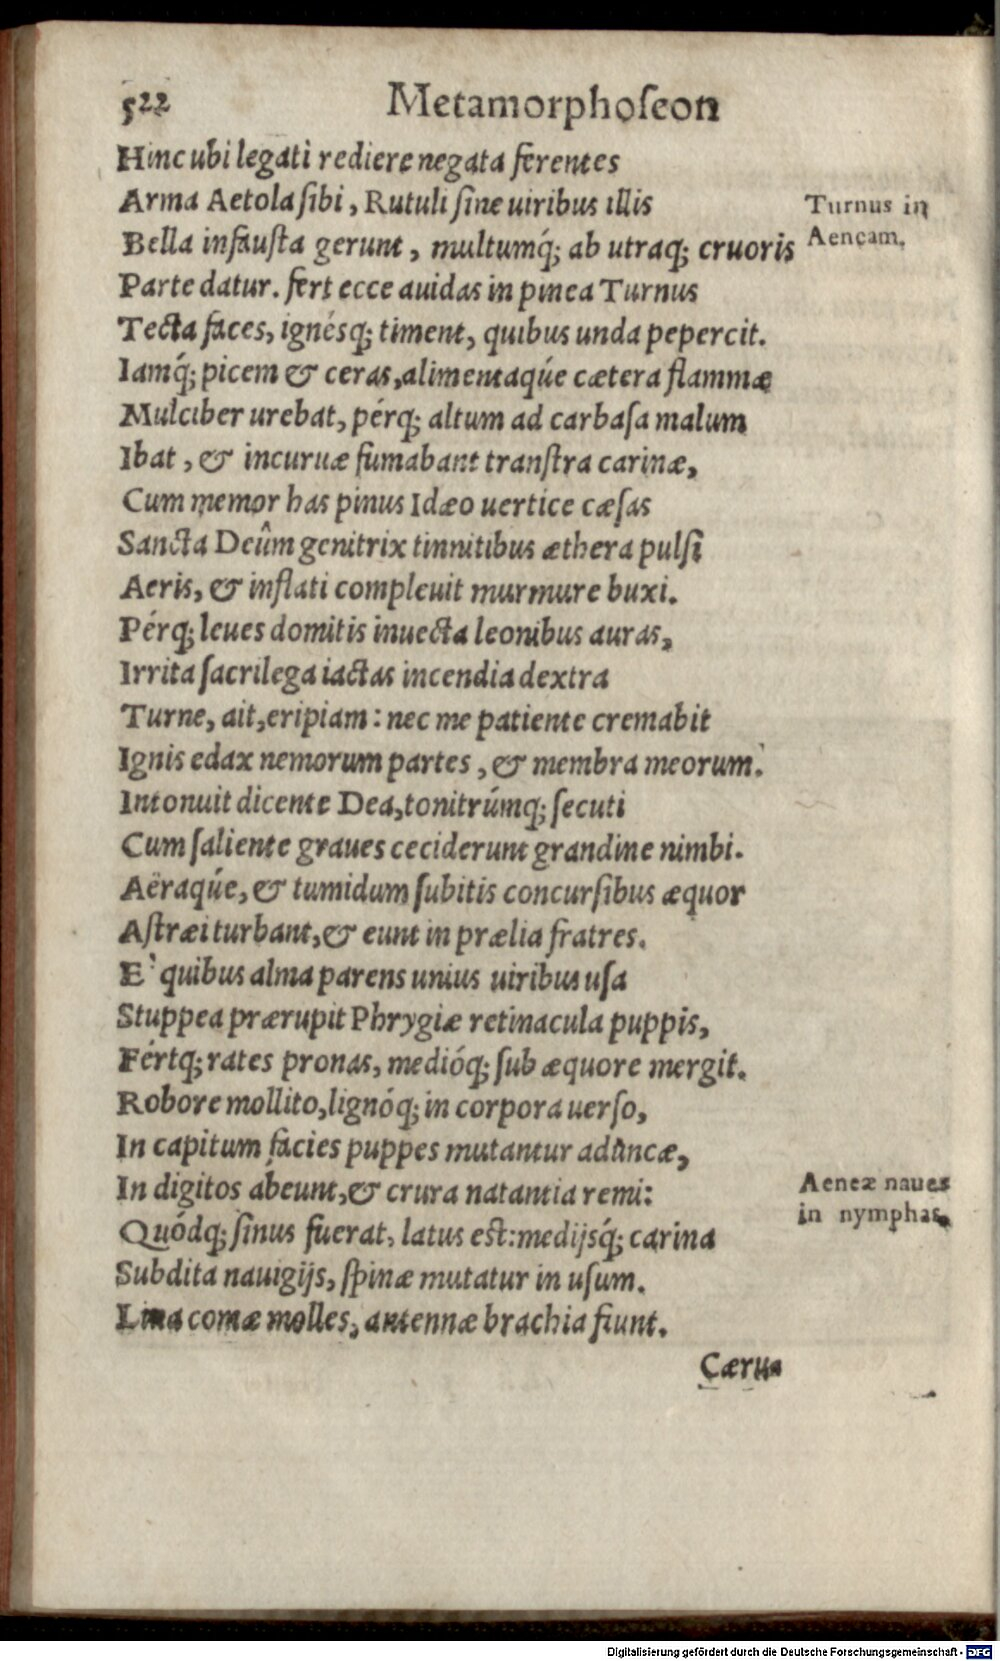 522 Metamorphoſeon
Hinc ubi legati rediere negata ferentes
Arma Aetola ſibi, Rutuli ſine uiribus illis
Bella infauſta gerunt, multumq́; ab utraq; cruoris
Parte datur. fert ecce auidas in pinea Turnus
Tecta faces, ignésq; timent, quibus unda pepercit.
Iamq́; picem & ceras, alimentaqúe cætera flammæ
Mulciber urebat, pérq; altum ad carbaſa malum
Ibat, & incuruæ fumabant tranſtra carinæ,
Cum memor has pinus Idæo uertice cæſas
Sancta Deûm genitrix tinnitibus æthera pulſi
Aeris, & inflati compleuit murmure buxi.
Pérq; leues domitis inuecta leonibus auras,
Irrita ſacrilega iactas incendia dextra
Turne, ait, eripiam: nec me patiente cremabit
Ignis edax nemorum partes, & membra meorum.
Intonuit dicente Dea, tonitrúmq; ſecuti
Cum ſaliente graues ceciderunt grandine nimbi.
Aëraqúe, & tumidum ſubitis concurſibus æquor
Aſtræi turbant, & eunt in prælia fratres.
E` quibus alma parens unius uiribus uſa
Stuppea prærupit Phrygiæ retinacula puppis,
Fértq; rates pronas, medióq; ſub æquore mergit.
Robore mollito, lignóq; in corpora uerſo,
In capitum facies puppes mutantur aduncæ,
In digitos abeunt, & crura natantia remi:
Quódq; ſinus fuerat, latus est: medijsq́; carina
Subdita nauigijs, ſpinæ mutatur in uſum.
Lina comæ molles, antennæ brachia fiunt.
Cæru
Turnus in
Aeneam.
Aeneæ naues
in nymphas.
Digitalisierung gefördert durch die Deutsche Forschungsgemeinschaft - DFG